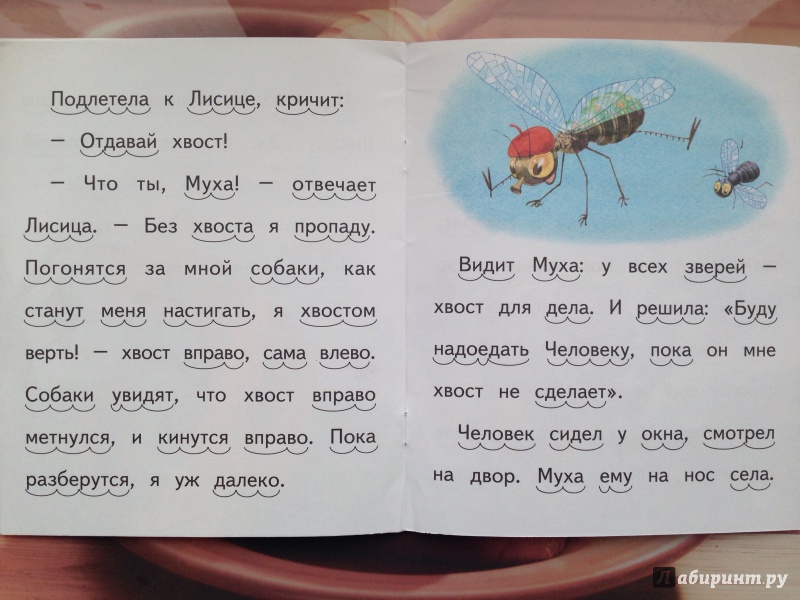 Подлетела к Лисице, кричит:
– Отдавай хвост!
– Что ты, Муха! – отвечает
Лисица. – Без хвоста я пропаду.
Погонятся за мной собаки, как
станут меня настигать, я хвостом
верть! – хвост вправо, сама влево.
Собаки увидят, что хвост вправо
метнулся, и кинутся вправо. Пока
разберутся, я уж далеко.
Видит Муха: у всех зверей –
хвост для дела. И решила: «Буду
надоедать Человеку, пока он мне
хвост не сделает».
Человек сидел у окна, смотрел
на двор. Муха ему на нос села.
Лабиринт.ру